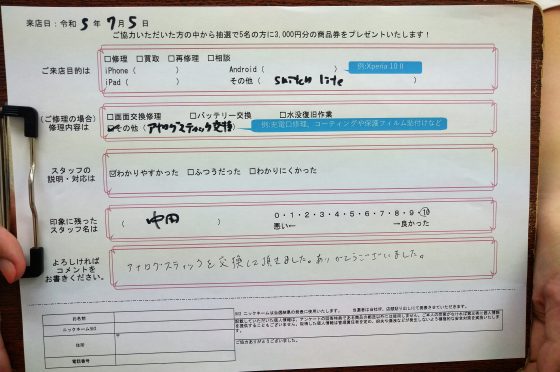 来店日：令和 5 年 7 月 5 日
ご協力いただいた方の中から抽選で5名の方に3,000円分の商品券をプレゼントいたします！
ご来店目的は
□修理 □買取 □再修理 □相談
iPhone（ ） Android（ ） 例:Xperia 10 II
iPad（ ） その他（ switch lite ）
（ご修理の場合）
修理内容は
□画面交換修理 □バッテリー交換 □水没復旧作業
☑その他（アナログスティック交換） 例:充電口修理、コーティングや保護フィルム貼付けなど
スタッフの
説明・対応は
☑わかりやすかった □ふつうだった □わかりにくかった
印象に残った
スタッフ名は
（ 中田 ）
0・1・2・3・4・5・6・7・8・9・10
悪い← →良かった
よろしければ
コメントを
お書きください。
アナログスティックを交換して頂きました。ありがとうございました。
お名前
ニックネーム※2
住所
〒
電話番号
ご協力ありがとうございました。